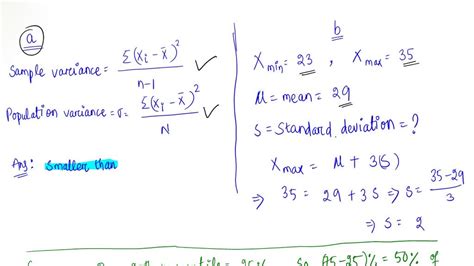 a
Sample variance = Σ(xᵢ - x̄)² / n-1 ✓
Population variance = σ = Σ(xᵢ - x̄)² / N ✓
Ans: Smaller than
b
Xmin = 23 , Xmax = 35
μ = mean = 29
S = Standard deviation = ?
Xmax = μ + 3(S)
⇒ 35 = 29 + 3S ⇒ S = 35-29 / 3
⇒ S = 2
So (75-25)% = 50% of